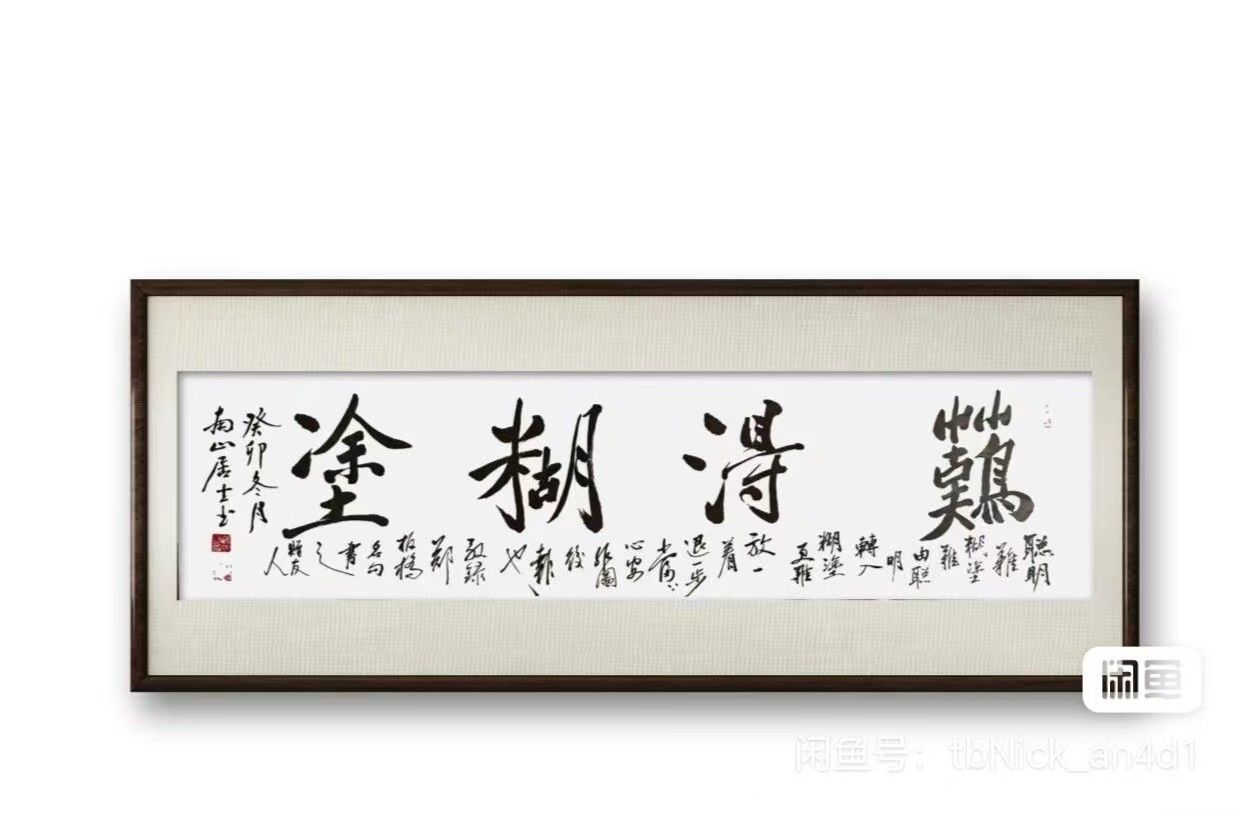 難得糊塗
聰明
難
糊塗
難
由聰
明
轉入
糊塗
更難
放一
着
退一步
當下
心安
非圖
後
報
也
敬録
鄭
板橋
名句
書
之
贈友
人
癸卯冬月
南山居士书
闲鱼
闲鱼号：tbNick_an4d1